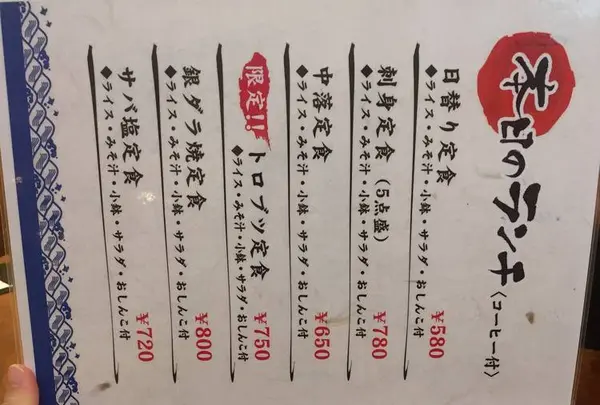 本日のランチ〈コーヒー付〉
日替り定食 ¥580
◆ライス・みそ汁・小鉢・サラダ・おしんこ付
刺身定食(5点盛) ¥780
◆ライス・みそ汁・小鉢・サラダ・おしんこ付
中落定食 ¥650
◆ライス・みそ汁・小鉢・サラダ・おしんこ付
限定!! トロブツ定食 ¥750
◆ライス・みそ汁・小鉢・サラダ・おしんこ付
銀ダラ焼定食 ¥800
◆ライス・みそ汁・小鉢・サラダ・おしんこ付
サバ塩定食 ¥720
◆ライス・みそ汁・小鉢・サラダ・おしんこ付